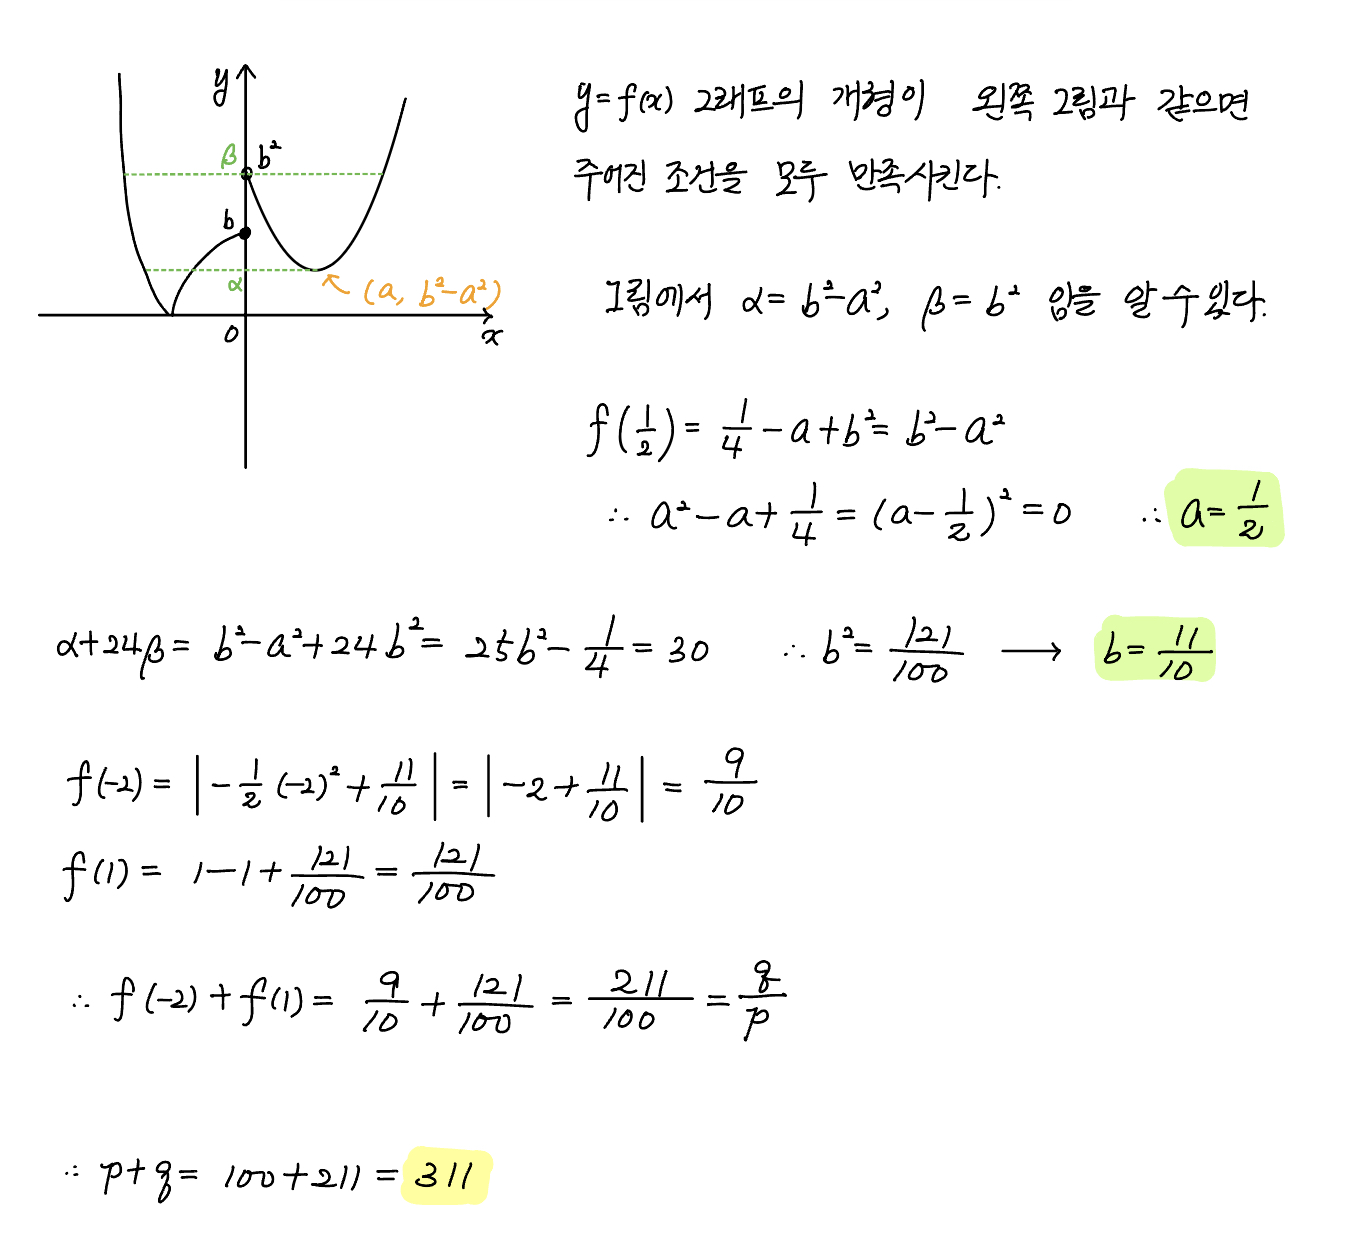 y
β b²
b
α
(a, b²-a²)
0
x
y=f(x) 그래프의 개형이 왼쪽 그림과 같으면
주어진 조건을 모두 만족시킨다.
그림에서 α= b²-a², β= b² 임을 알 수 있다.
f(1/2)= 1/4 -a+b²= b²-a²
∴ a²-a+1/4 = (a-1/2)² =0 ∴ a=1/2
α+24β= b²-a²+24b²= 25b²-1/4 =30 ∴ b²= 121/100 ⟶ b=11/10
f(-2)= |-1/2 (-2)²+11/10| = |-2+11/10| = 9/10
f(1)= 1-1+121/100 = 121/100
∴ f(-2)+f(1)= 9/10 + 121/100 = 211/100 = q/p
∴ p+q= 100+211 = 311